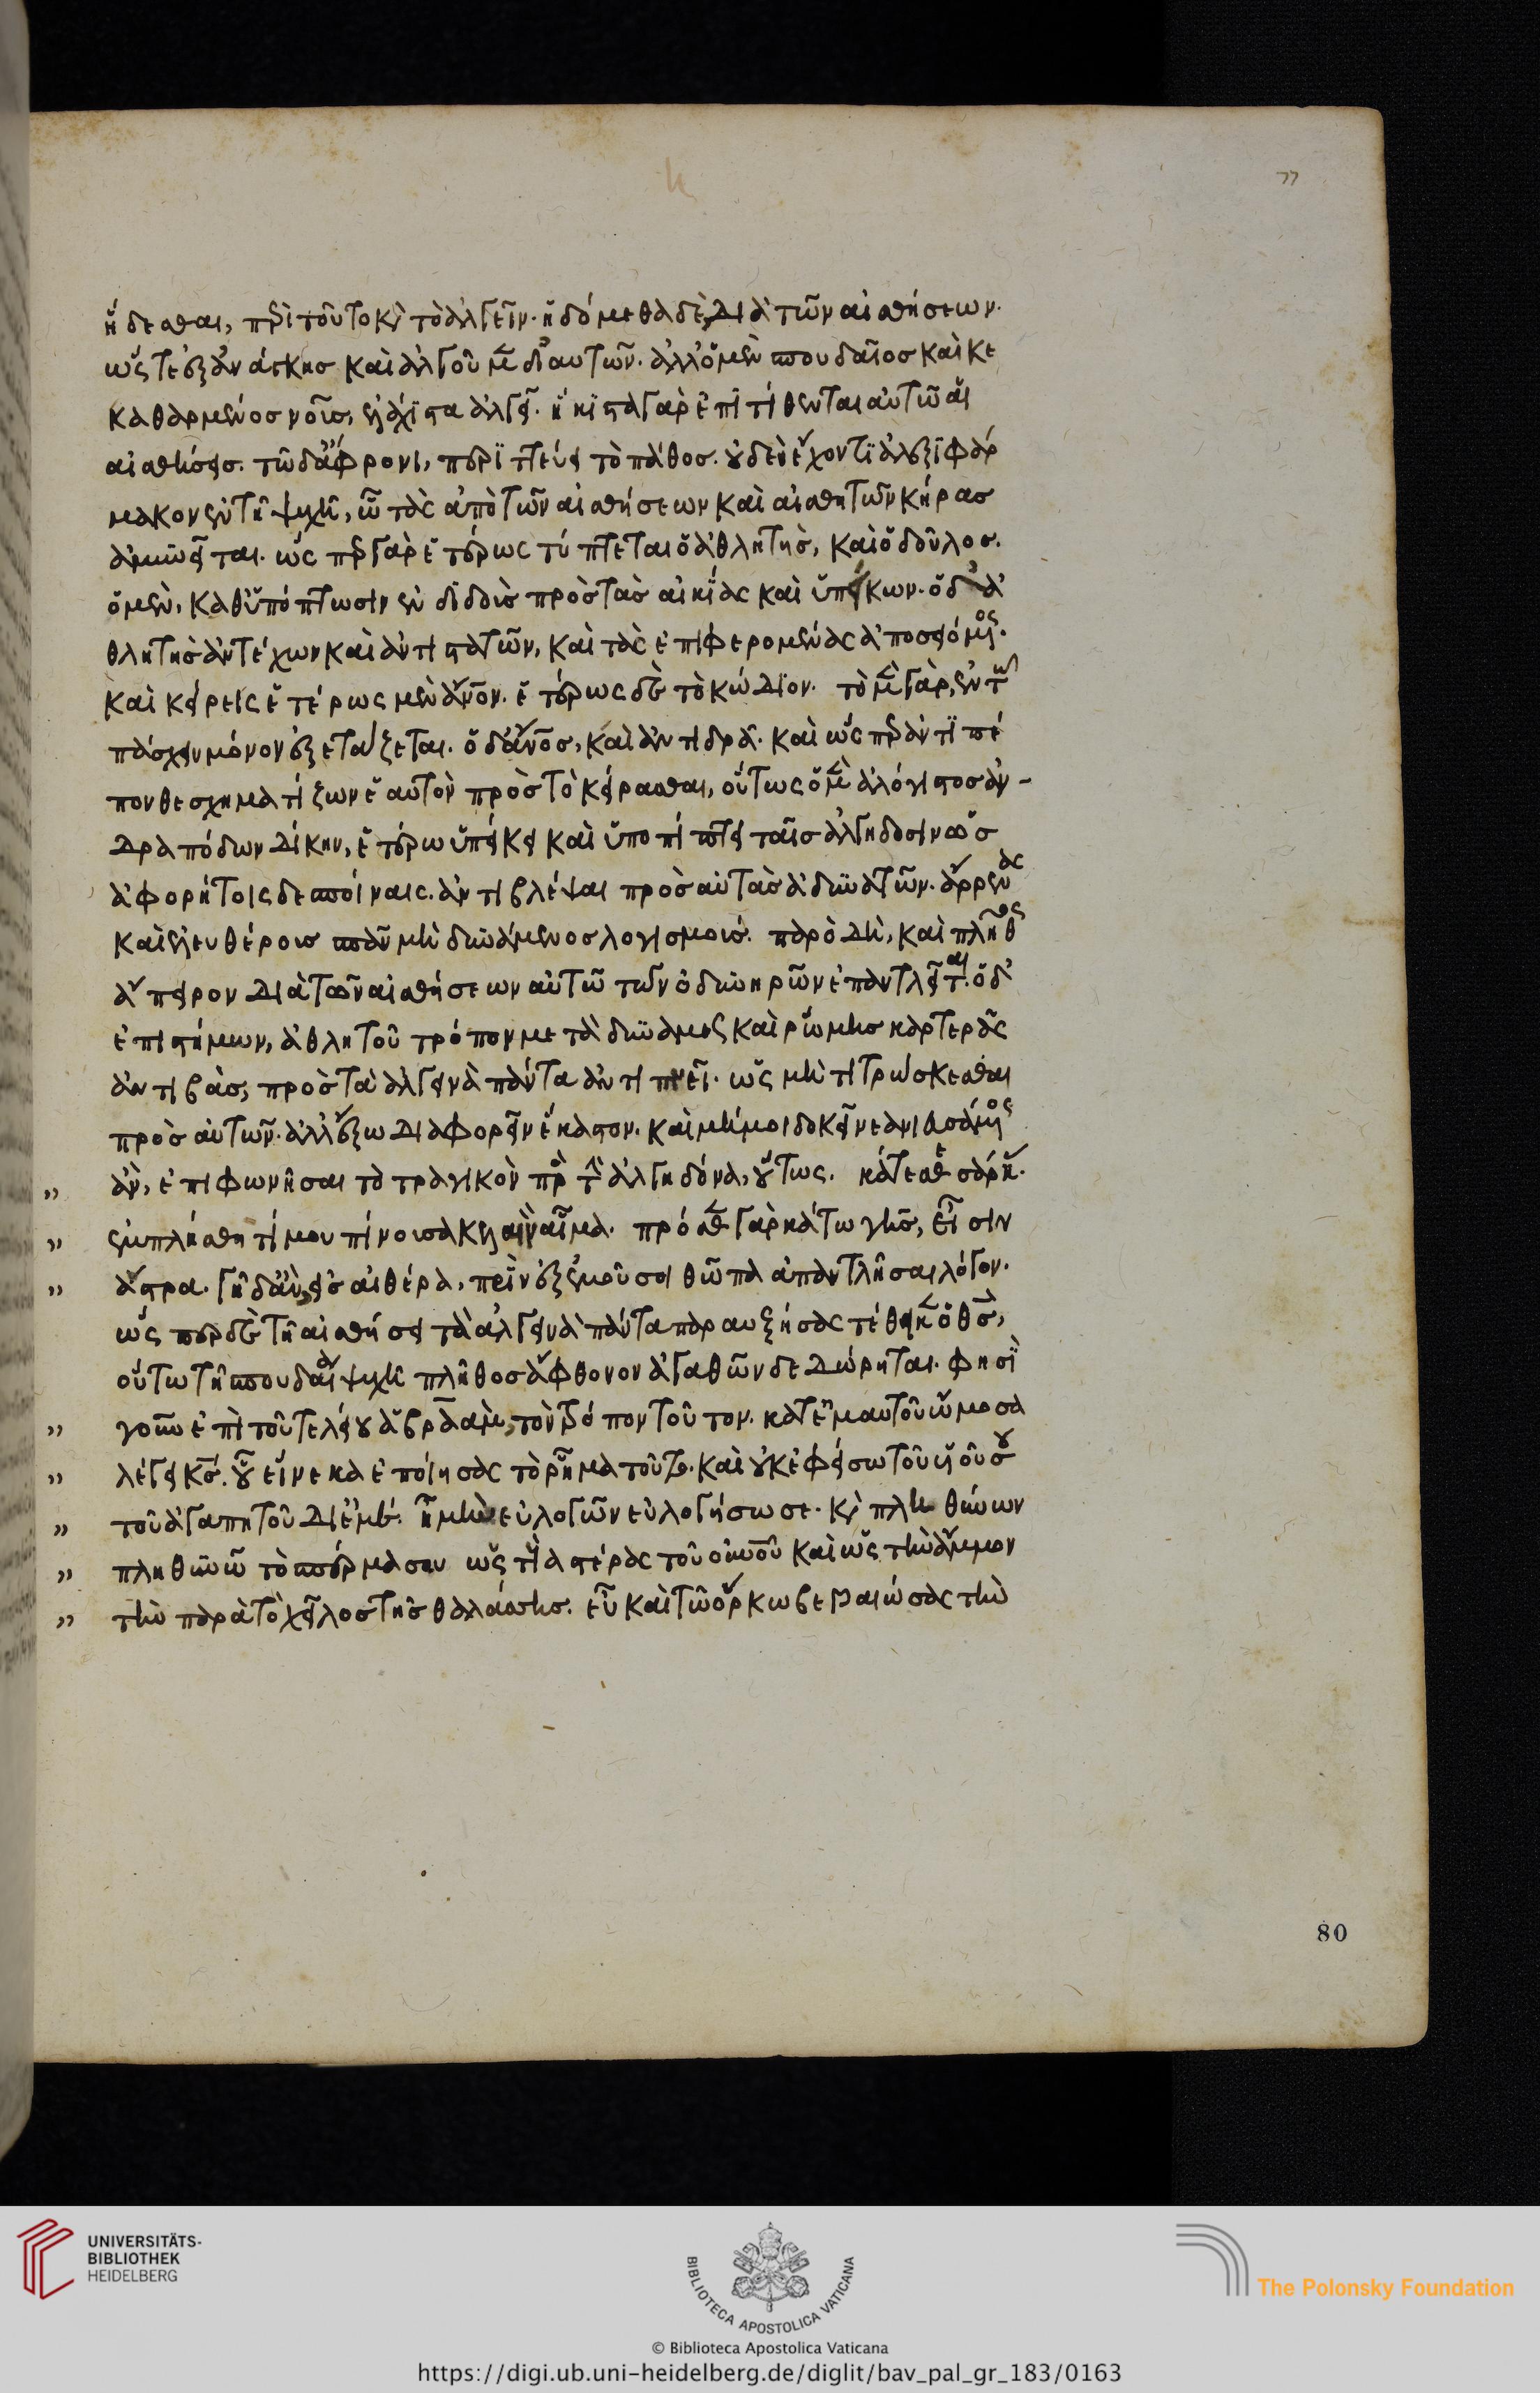 ἥδεσθαι, περὶ τοῦτο καὶ τὸ ἀλγεῖν. ἡδόμεθα δὲ, διὰ τῶν αἰσθήσεων.
ὥστε ἐξ ἀνάγκης καὶ ἀλγοῦμεν δι' αὐτῶν. ἀλλ' ὁ μὲν σπουδαῖος καὶ κε
καθαρμένος νοῦς, ἐλάχιστα ἀλγεῖ. ἥκιστα γὰρ ἐπιτίθενται αὐτῶ αἱ
αἰσθήσεις. τῶ δ' ἄφρονι, περιττεύει τὸ πάθος. οὐδὲν ἔχοντι ἀλεξιφάρ
μακον ἐν τῆ ψυχῆ, ὧ τὰς ἀπὸ τῶν αἰσθήσεων καὶ αἰσθητῶν κῆρας
ἀμυνεῖται. ὥσπερ γὰρ ἑτέρως τύπτεται ὁ ἀθλητὴς, καὶ ὁ δοῦλος.
ὁ μὲν, καθ' ὑπόπτωσιν ἐνδιδοὺς πρὸς τὰς αἰκίας καὶ ὑπείκων. ὁ δ' ἀ
θλητὴς ἀντέχων καὶ ἀντιστατῶν, καὶ τὰς ἐπιφερομένας ἀποσειόμενος.
καὶ κείρεις ἑτέρως μὲν ἄνον. ἑτέρως δὲ τὸ κώδιον. τὸ μὲν γὰρ, ἐν τῶ
πάσχειν μόνον ἐξετάζεται. ὁ δ' ἄνος, καὶ ἀντιδρᾶ. καὶ ὥσπερ ἀντιπέ
πονθε σχηματίζων ἑαυτὸν πρὸς τὸ κείρασθαι, οὕτως ὁ μὲν ἀλόγιστος ἀν-
δραπόδων δίκην, ἑτέρω ὑπείκει καὶ ὑποπίπτει ταῖς ἀλγηδόσιν ὡς
ἀφορήτοις δεσποίναις. ἀντιβλέψαι πρὸς αὐτὰς ἀδυνατῶν. ἄρρενας
καὶ ἐλευθέροις σπᾶν μὴ δυνάμενος λογισμοὺς. παρὸ δὴ, καὶ πλῆθος
ἄπειρον διὰ τῶν αἰσθήσεων αὐτῶ τῶν ὀδυνηρῶν ἐπαντλεῖται. ὁ δ'
ἐπιστήμων, ἀθλητοῦ τρόπον μετὰ δυνάμεως καὶ ῥώμης καρτερᾶς
ἀντιβὰς, πρὸς τὰ ἀλγεινὰ πάντα ἀντιπνεῖ. ὡς μὴ τιτρώσκεσθαι
πρὸς αὐτῶν. ἀλλ' ἔξω διαφορεῖν ἕκαστον. καὶ μή μοι δοκεῖ νεανιευσάμενος
,, ἂν, ἐπιφωνῆσαι τὸ τραγικὸν πρὸς τὴν ἀλγηδόνα, οὕτως. κάταιθε σάρκας.
,, ἐμπλήσθητί μου πίνουσα κελαινὸν αἷμα. πρόσθεν γὰρ κάτω γῆς, εἶσιν
,, ἄστρα. γῆ δ' ἄνεισ' ἐς αἰθέρα, πρὶν ἐξ ἐμοῦ σοι θῶπα ἀπαντλῆσαι λόγον.
ὥσπερ δὲ τῆ αἰσθήσει τὰ ἀλγεινὰ πάντα παραυξήσας τέθεικεν ὁ θς,
οὕτω τῆ σπουδαία ψυχῆ πλῆθος ἄφθονον ἀγαθῶν δεδώρηται. φησὶ
,, γοῦν ἐπὶ τοῦ τελείου ἀβραὰμ, τὸν τρόπον τοῦτον. κατ' ἐμαυτοῦ ὤμοσα
,, λέγει κς. οὗ εἵνεκα ἐποίησας τὸ ῥῆμα τοῦτο. καὶ οὐκ ἐφείσω τοῦ υἱοῦ σου
,, τοῦ ἀγαπητοῦ δι' ἐμέ. ἦ μὴν εὐλογῶν εὐλογήσω σε. καὶ πληθύνων
,, πληθυνῶ τὸ σπέρμα σου ὡς τοὺς ἀστέρας τοῦ οὐνοῦ καὶ ὡς τὴν ἄμμον
,, τὴν παρὰ τὸ χεῖλος τῆς θαλάσσης. εὖ καὶ τῶ ὅρκω βεβαιώσας τὴν
77
80
UNIVERSITÄTS-
BIBLIOTHEK
HEIDELBERG
BIBLIOTECA APOSTOLICA VATICANA
The Polonsky Foundation
© Biblioteca Apostolica Vaticana
https://digi.ub.uni-heidelberg.de/diglit/bav_pal_gr_183/0163